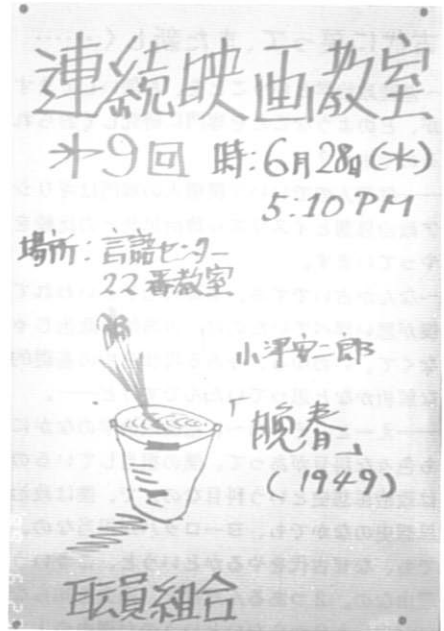 連続映画教室
㐧9回 時:6月28日(水)
5:10 PM
場所:言語センター
22番教室
小津安二郎
「晩春」
(1949)
職員組合